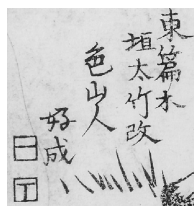 東篇木
垣太竹改
色山人
好成